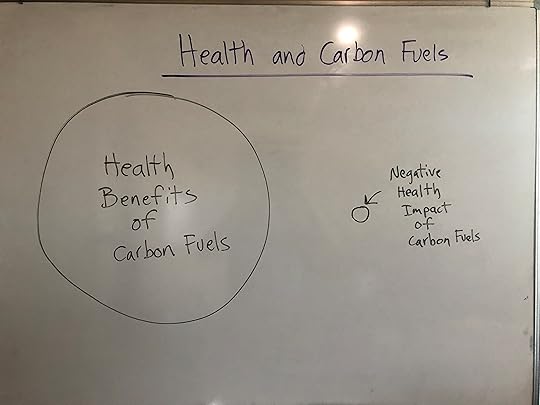 Health and Carbon Fuels
Health
Benefits
of
Carbon Fuels
Negative
Health
Impact
of
Carbon Fuels